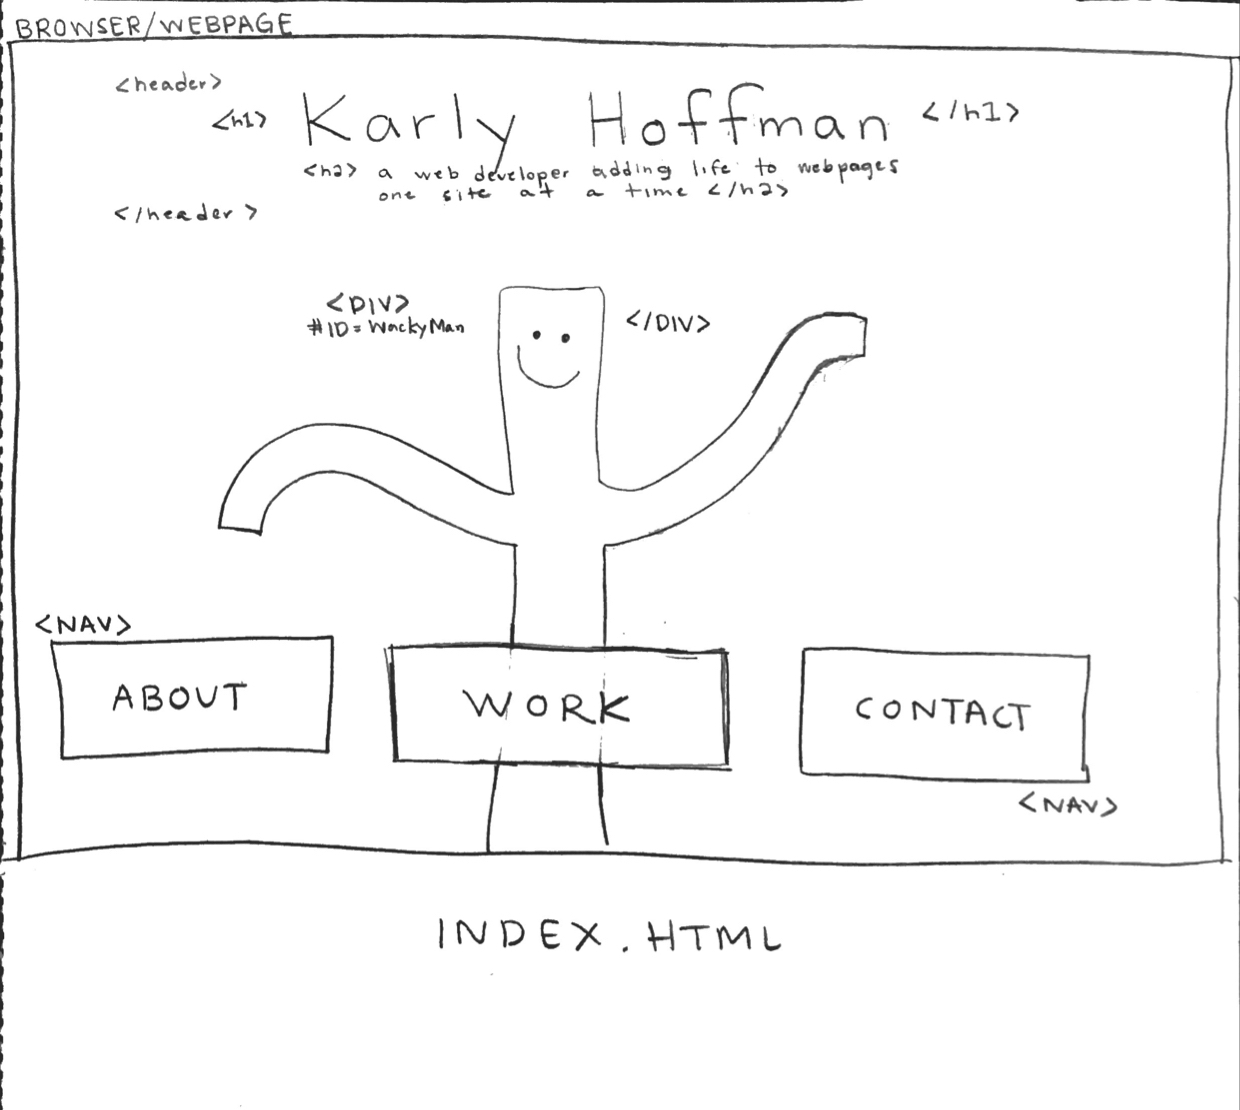 BROWSER/WEBPAGE
<header>
<h1> Karly Hoffman </h1>
<h2> a web developer adding life to webpages
one site at a time </h2>
</header>
<DIV>
#ID=WackyMan
</DIV>
<NAV>
ABOUT
WORK
CONTACT
<NAV>
INDEX.HTML